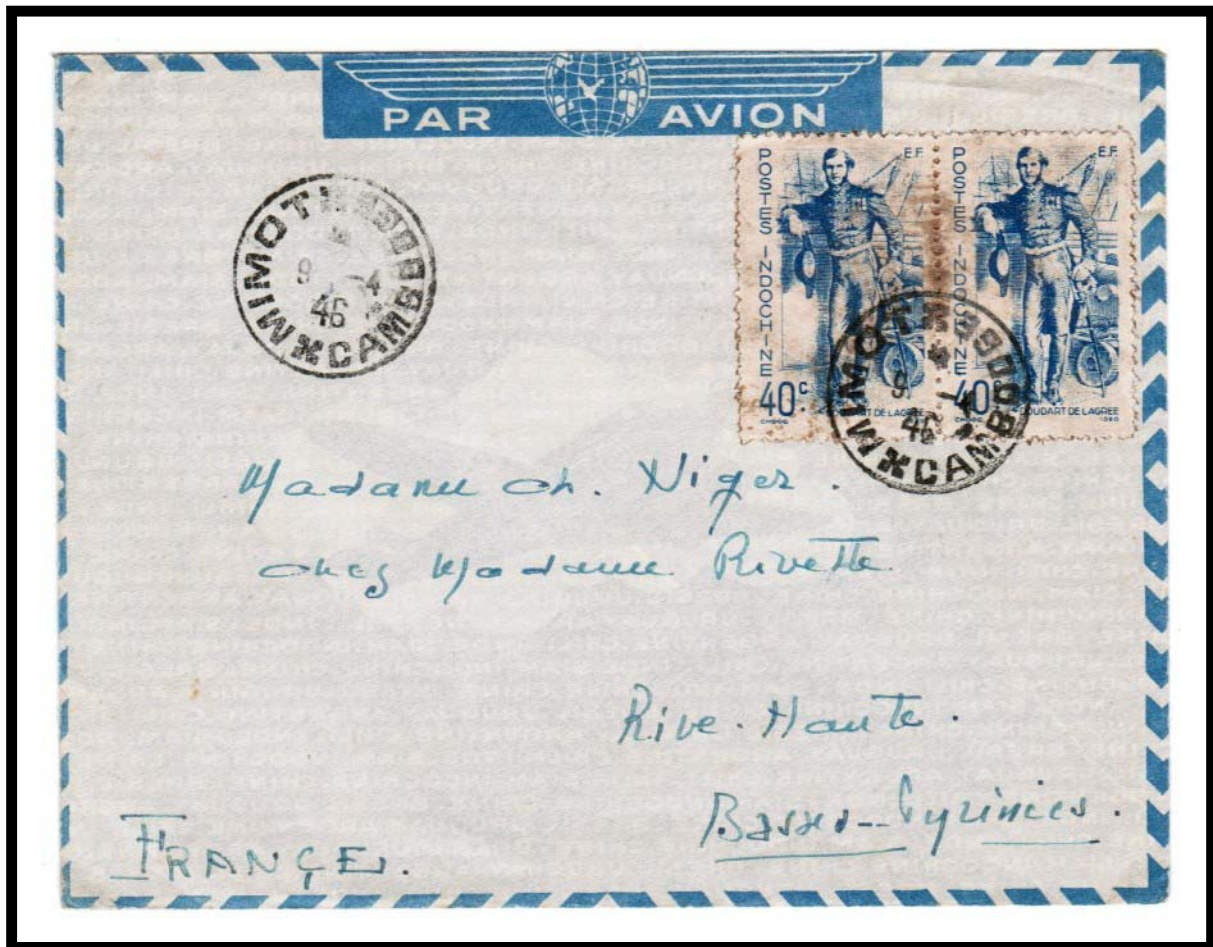 PAR AVION
POSTES INDOCHINE
E.F.
40c
DOUDART DE LAGREE
POSTES INDOCHINE
E.F.
40c
DOUDART DE LAGREE
MIMOT CAMBODGE
9 -4
46
MIMOT CAMBODGE
9 -4
46
Madame Ch. Niger.
chez Madame Rivette
Rive-Haute.
Basses-Pyrénées.
FRANÇE.